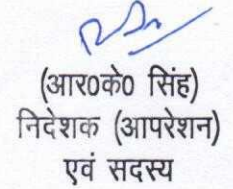 (आर०के० सिंह)
निदेशक (आपरेशन)
एवं सदस्य